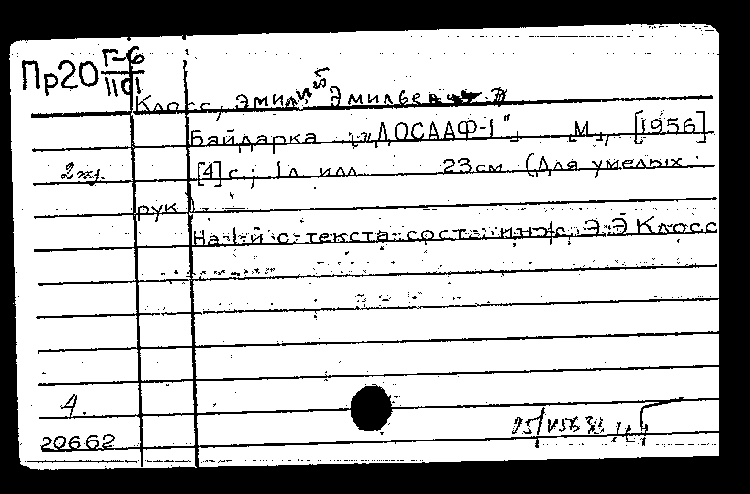 Пр20 Г-6
1101
Класс, Эмилий Эмильевич
Байдарка „ДОСААФ-1" М., [1956]
2 экз. [4] с., 1 л. илл. 23 см (Для умелых
рук)
На 1-й с. текста сост.: инж. Э. Э. Класс
4.
20662